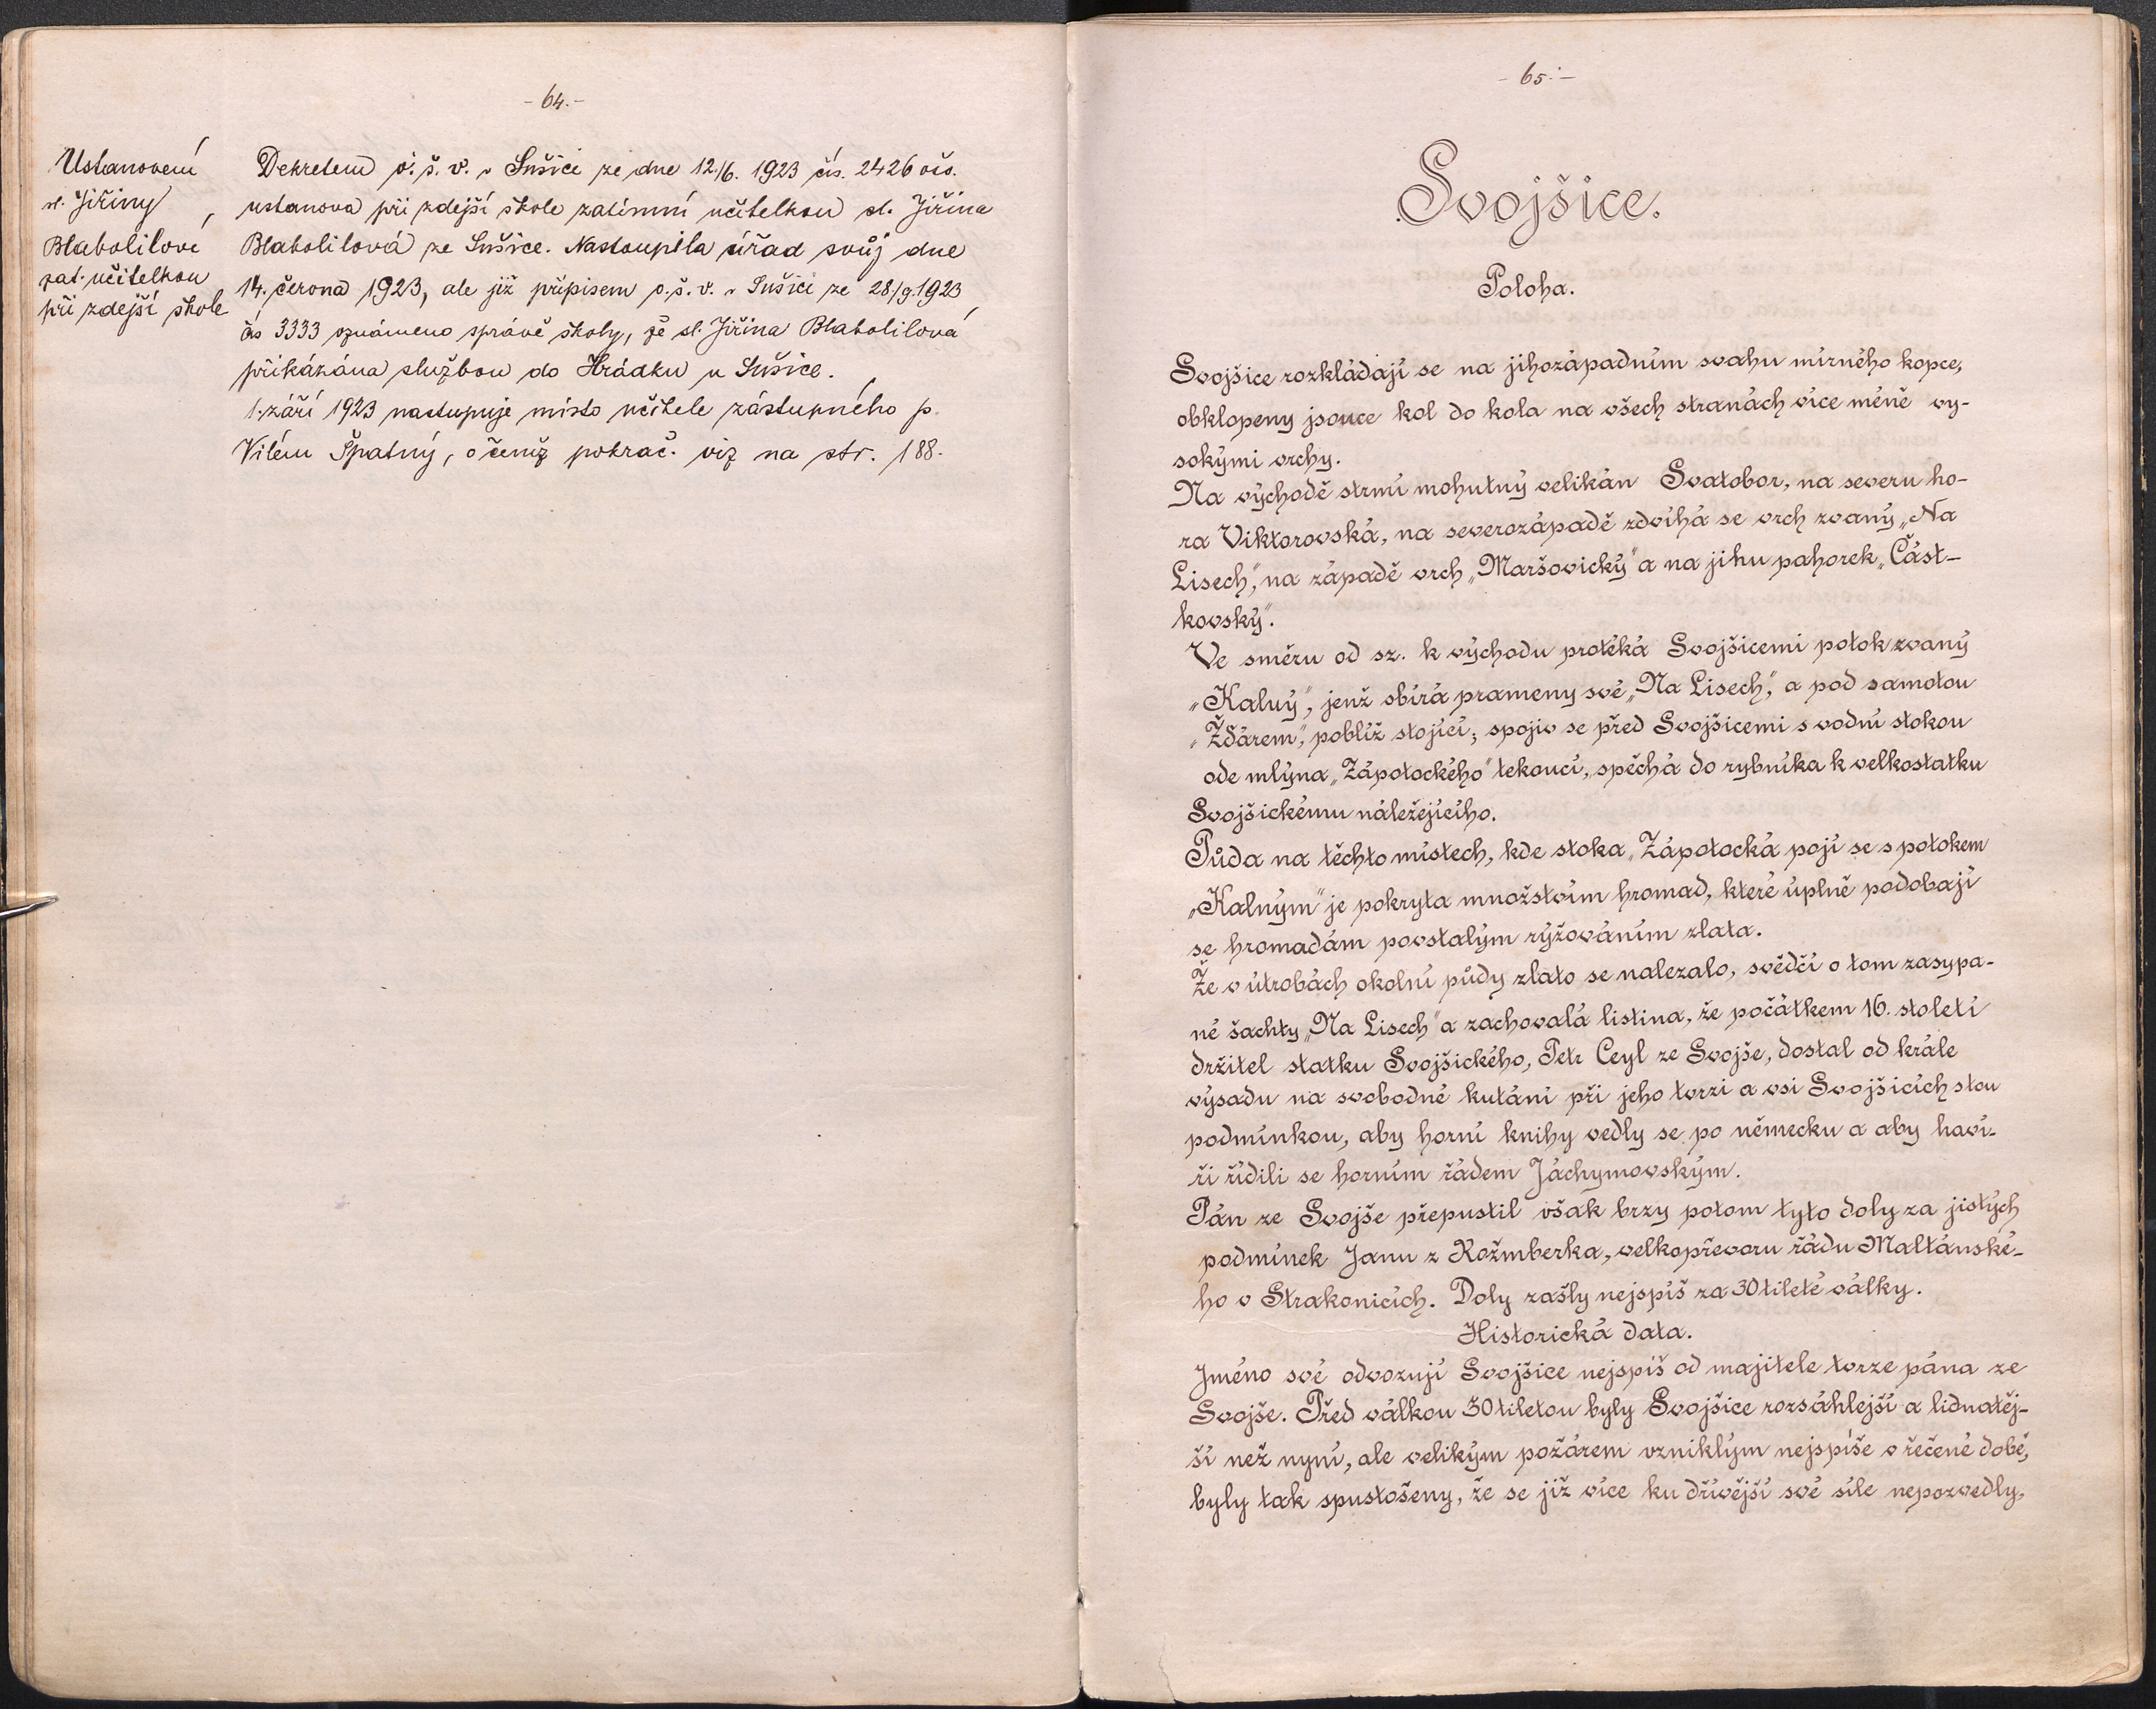 - 64. -
Ustanovení
sl. Jiřiny
Blabolilové
zat. učitelkou
při zdejší škole
Dekretem o. š. v. v Sušici ze dne 12./6. 1923 čís. 2426 oš.
ustanova při zdejší škole zatímní učitelkou sl. Jiřina
Blabolilová ze Sušice. Nastoupila úřad svůj dne
14. června 1923, ale již přípisem o. š. v. v Sušici ze 28/9. 1923
čís 3333 oznámeno správě školy, že sl. Jiřina Blabolilová
přikázána službou do Hrádku u Sušice.
1. září 1923 nastupuje místo učitele zástupného p.
Vilém Špatný, o čemž pokrač. viz na str. 188.
- 65. -
Svojšice.
Poloha.
Svojšice rozkládají se na jihozápadním svahu mírného kopce,
obklopeny jsouce kol do kola na všech stranách více méně vy-
sokými vrchy.
Na východě strmí mohutný velikán Svatobor, na severu ho-
ra Viktorovská, na severozápadě zdvihá se vrch zvaný „Na
Lisech“, na západě vrch „Maršovický“ a na jihu pahorek „Část-
kovský“.
Ve směru od sz. k východu protéká Svojšicemi potok zvaný
„Kalný“, jenž sbírá prameny své „Na Lisech“, a pod samotou
„Žďárem“, poblíž stojící; spojiv se před Svojšicemi s vodní stokou
ode mlýna „Zápotockého“ tekoucí, spěchá do rybníka k velkostatku
Svojšickému náležejícího.
Půda na těchto místech, kde stoka „Zápotocká pojí se s potokem
„Kalným“ je pokryta množstvím hromad, které úplně podobají
se hromadám povstalým rýžováním zlata.
Že v útrobách okolní půdy zlato se nalezalo, svědčí o tom zasypa-
né šachty „Na Lisech“ a zachovalá listina, že počátkem 16. století
držitel statku Svojšického, Petr Ceyl ze Svojše, dostal od krále
výsadu na svobodné kutání při jeho tvrzi a vsi Svojšicích s tou
podmínkou, aby horní knihy vedly se po německu a aby haví-
ři řídili se horním řádem Jáchymovským.
Pán ze Svojše přepustil však brzy potom tyto doly za jistých
podmínek Janu z Rožmberka, velkopřevoru řádu Maltánské-
ho v Strakonicích. Doly zašly nejspíš za 30tileté války.
Historická data.
Jméno své odvozují Svojšice nejspíš od majitele tvrze pána ze
Svojše. Před válkou 30tiletou byly Svojšice rozsáhlejší a lidnatěj-
ší než nyní, ale velikým požárem vzniklým nejspíše v řečené době,
byly tak spustošeny, že se již více ku dřívější své síle nepozvedly,